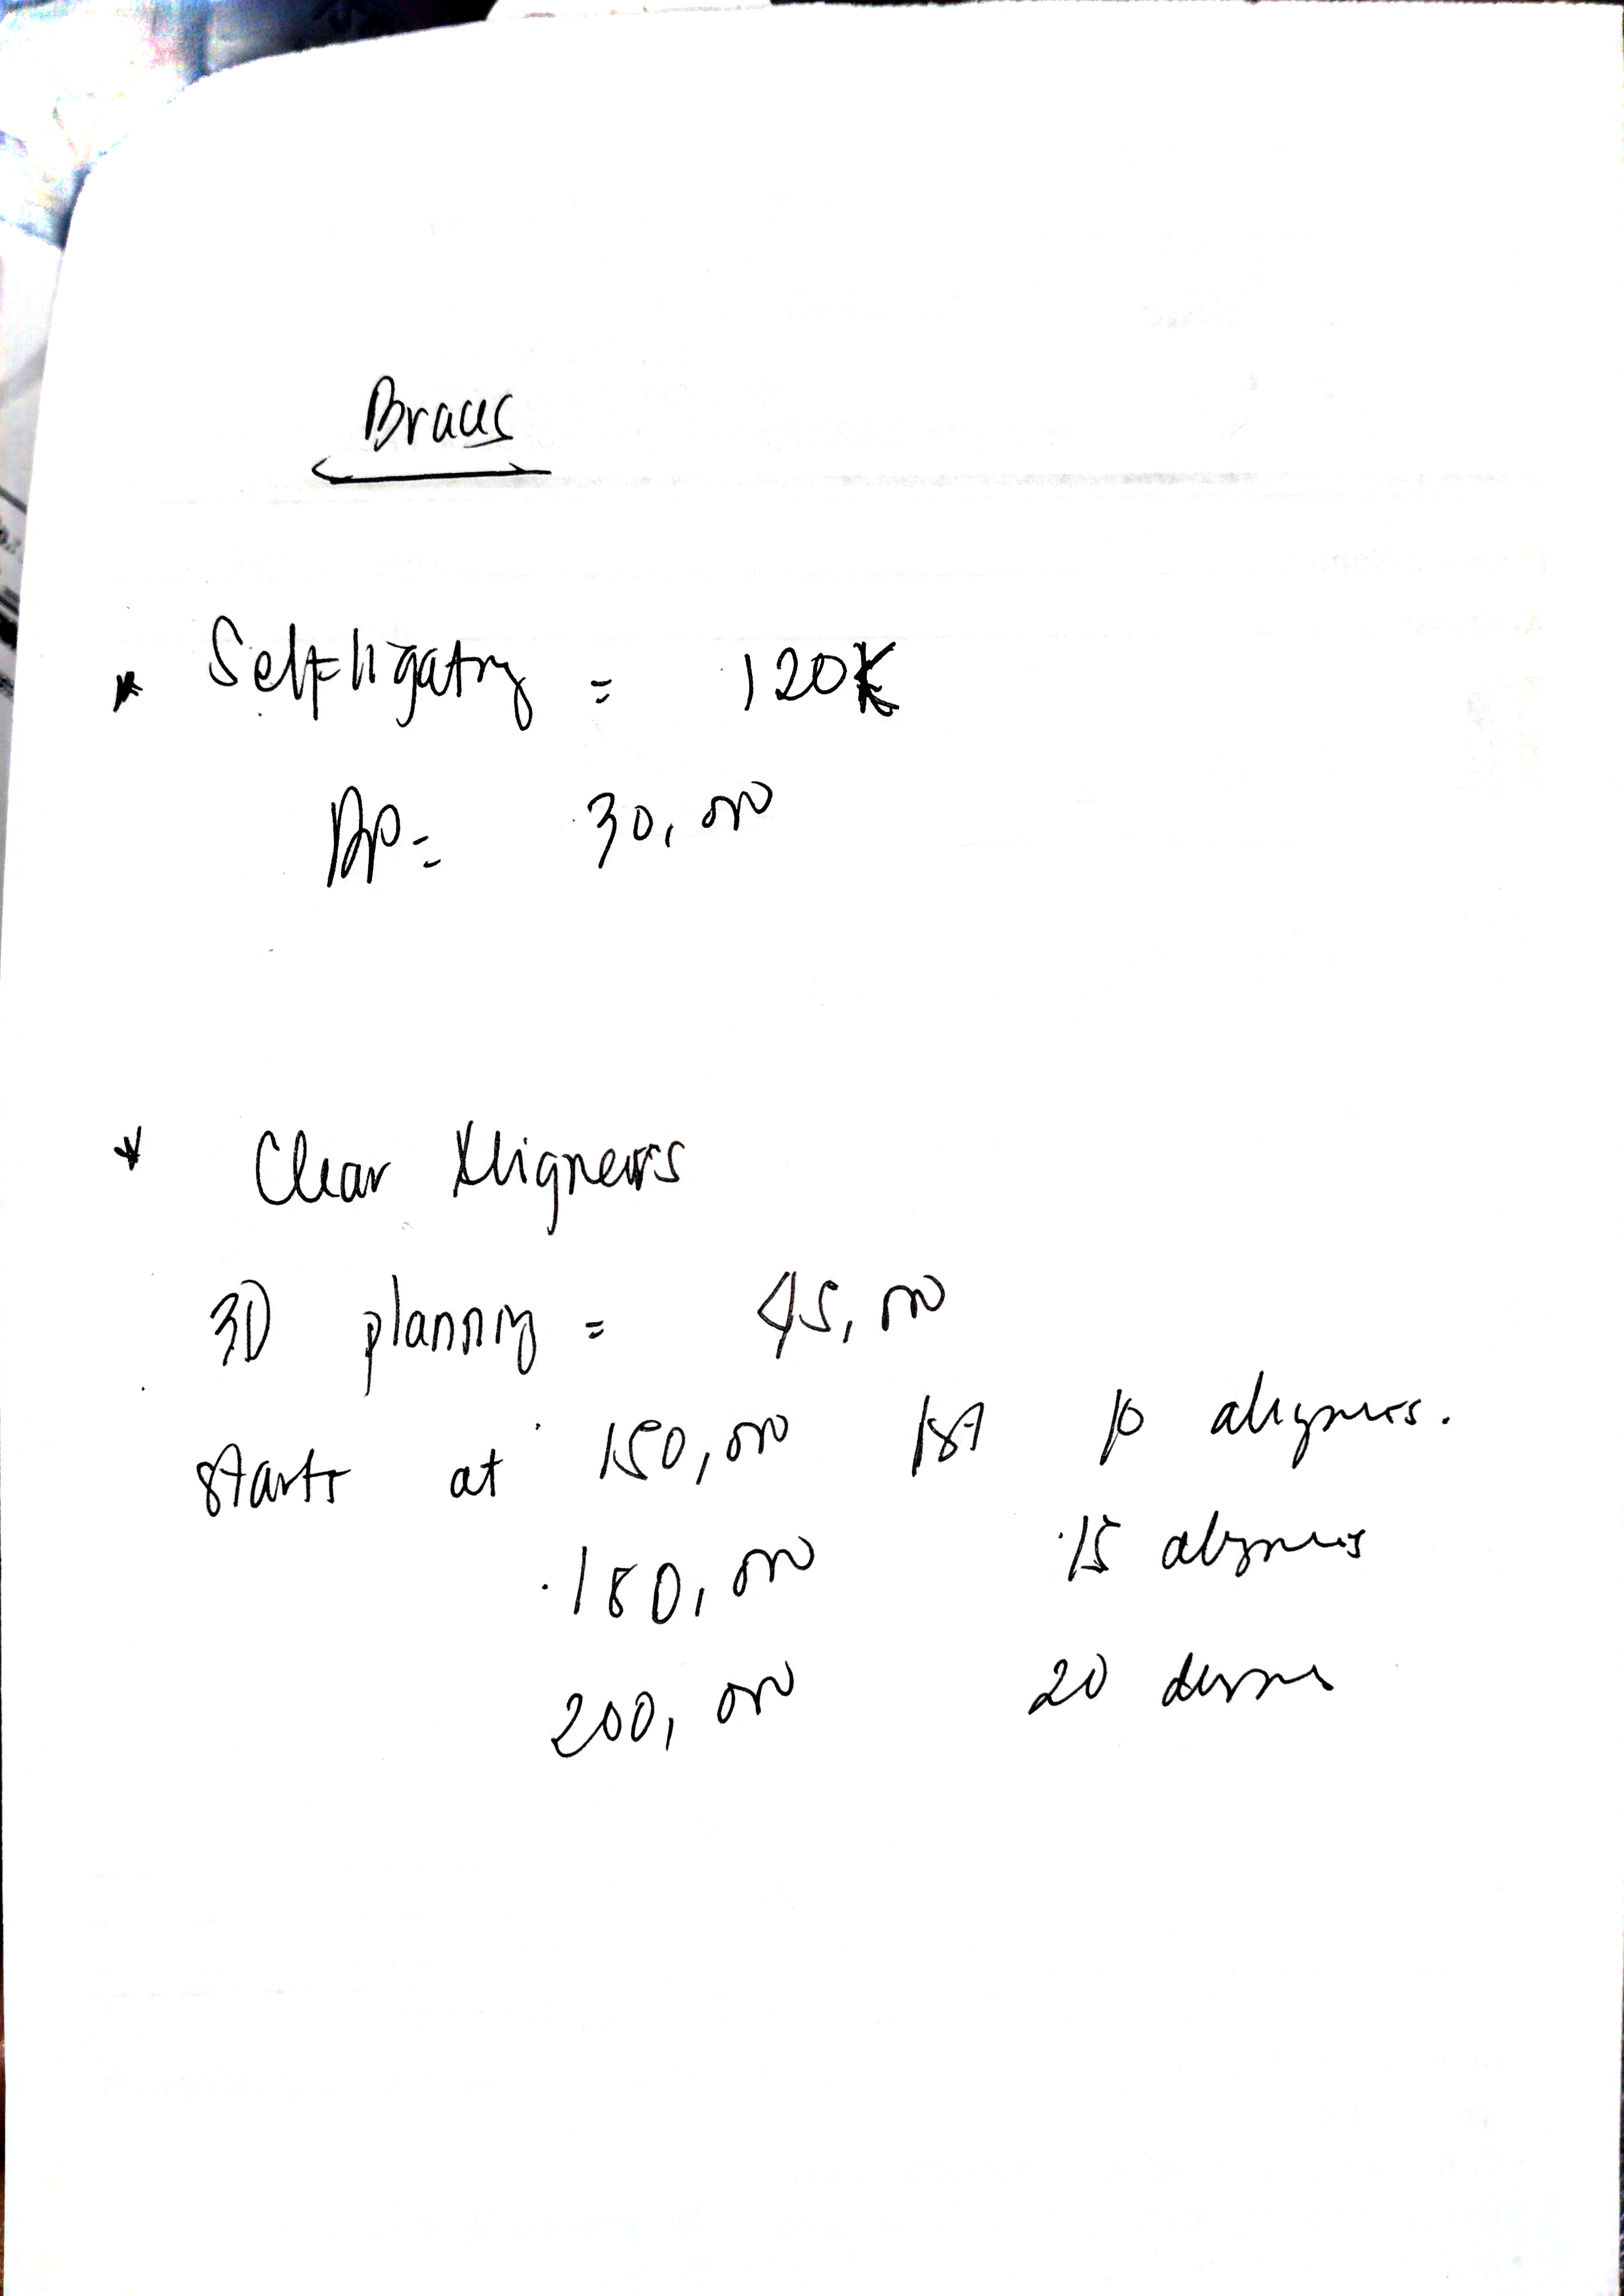 Braces
* Self-ligating = 120K
DP = 30,000
* Clear Aligners
3D planning = 45,000
starts at 150,000 1st 10 aligners.
180,000 15 aligners
200,000 20